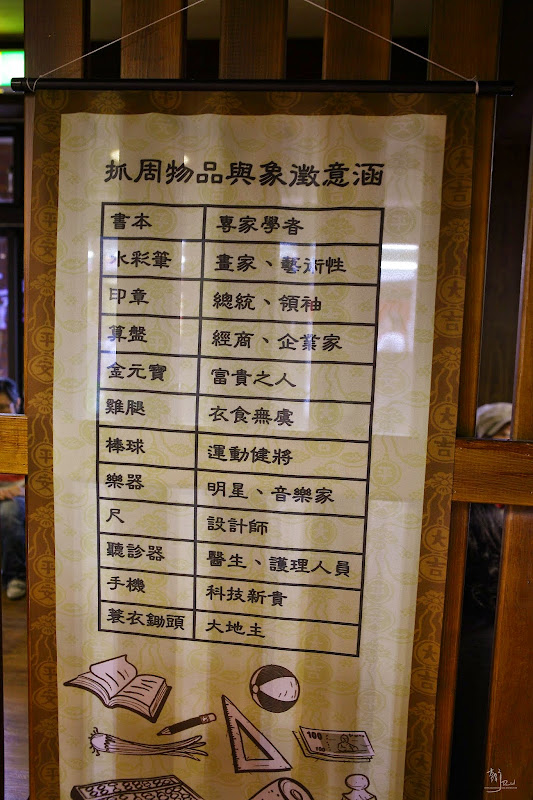 抓周物品與象徵意涵
書本 專家學者
水彩筆 畫家、藝術性
印章 總統、領袖
算盤 經商、企業家
金元寶 富貴之人
雞腿 衣食無虞
棒球 運動健將
樂器 明星、音樂家
尺 設計師
聽診器 醫生、護理人員
手機 科技新貴
蓑衣鋤頭 大地主
100
100
大吉
平安